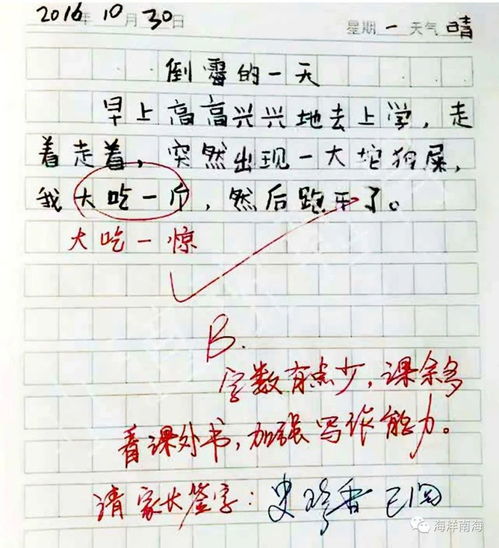 2016年10月30日 星期一 天气晴
倒霉的一天
早上高高兴兴地去上学，走
着走着，突然出现一大坨狗屎，
我大吃一斤，然后跑开了。
大吃一惊
B.
字数有点少，课余多
看课外书，加强写作能力。
请家长签字：史珍香 已阅
海洋南海